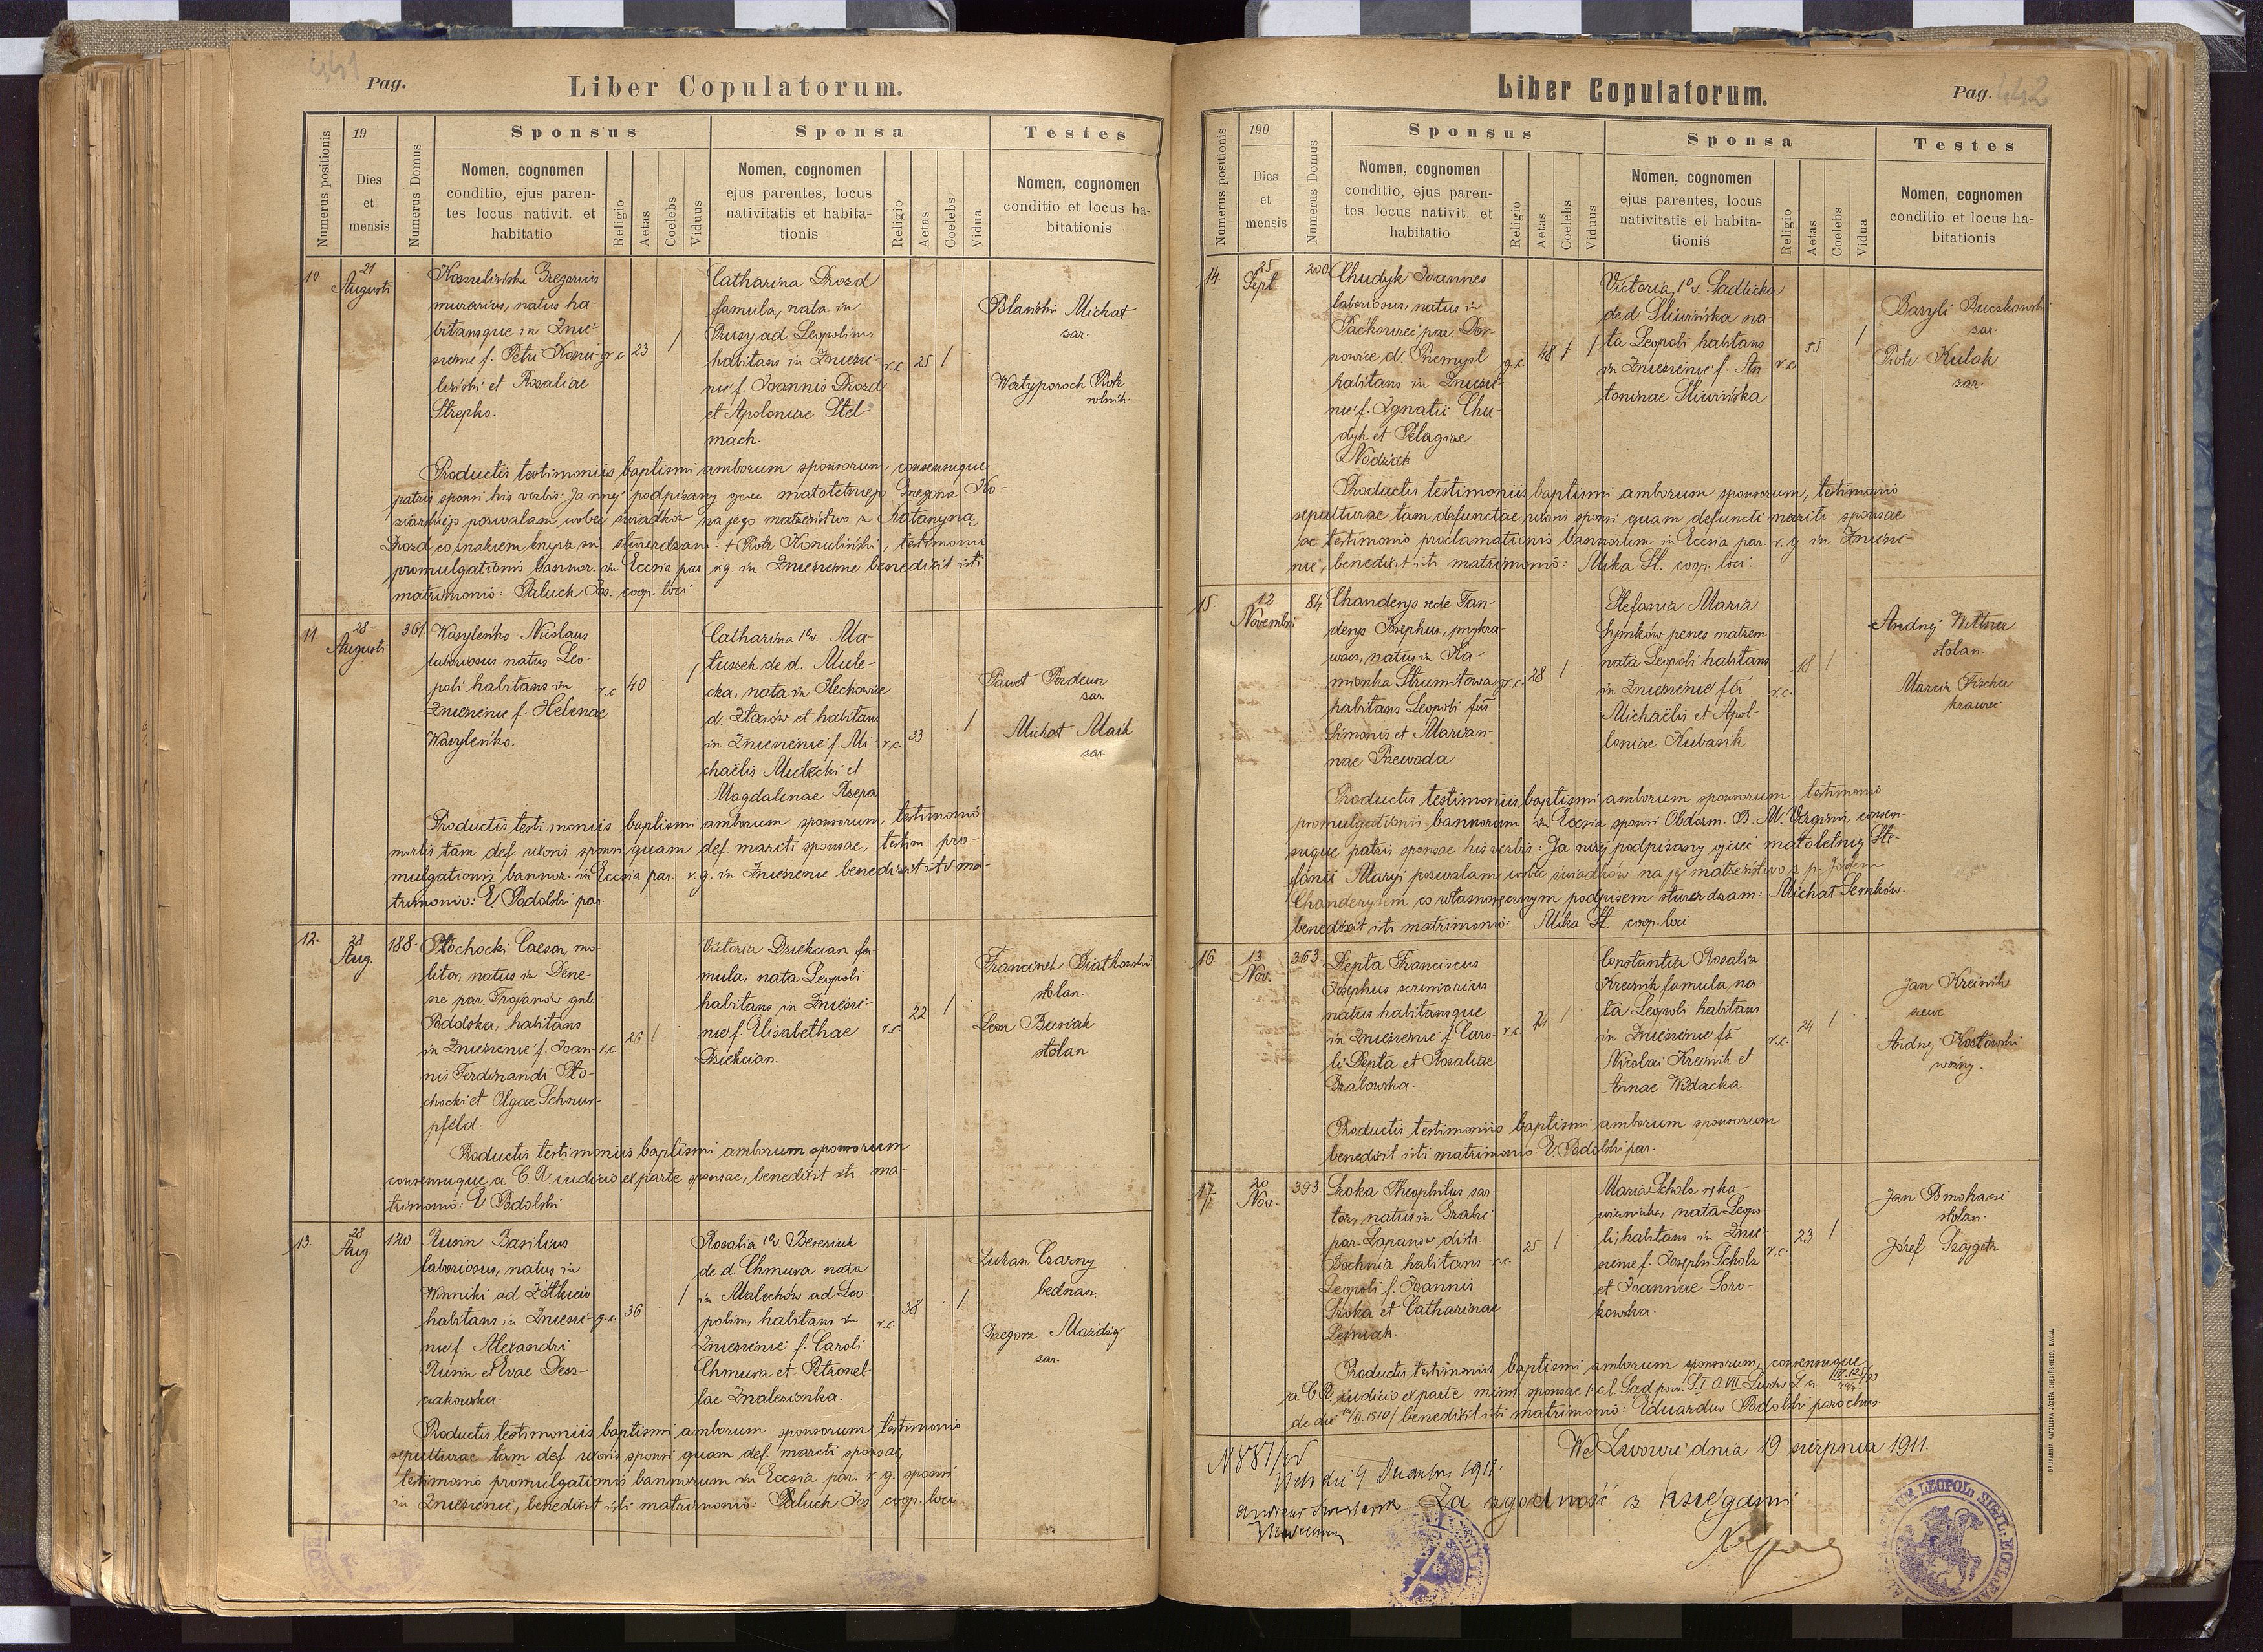 441
Pag.
Liber Copulatorum.
Numerus positionis
19
Dies
et
mensis
Numerus Domus
Sponsus
Nomen, cognomen
conditio, ejus paren-
tes locus nativit. et
habitatio
Religio
Aetas
Coelebs
Viduus
Sponsa
Nomen, cognomen
ejus parentes, locus
nativitatis et habita-
tionis
Religio
Aetas
Coelebs
Vidua
Testes
Nomen, cognomen
conditio et locus ha-
bitationis
10
21
Augusti
Gregorius
murarius, natus ha-
bitansque in Znie-
sienie f. Petri
et Rosaliae
Strepko.
gr. c.
23
1
Catharina Drozd
famula, nata in
Prusy ad Leopolim,
habitans in Zniesie-
nie f. Joannis Drozd
et Apoloniae Stel-
mach.
r.c.
25
1
Michał
sar.
Piotr
rolnik.
Productis testimoniis baptismi amborum sponsorum, consensuque
patris sponsi his verbis: Ja niżej podpisany ojciec małoletniego Grzegorza
pozwalam wobec świadków na jego małżeństwo z Katarzyną
Drozd co znakiem krzyża św. stwierdzam: + Piotr, testimonio
promulgationis bannor. in Eccsia par. r.g. in Zniesienie benedixit isti
matrimonio: Paluch Jos. coop. loci
11
28
Augusti
361
Wasyleńko Nicolaus
laboriosus natus Leo-
poli habitans in
Zniesienie f. Helenae
Wasyleńko.
r.c.
40
1
Catharina 1º v. Ma-
tuszek de d. Miele-
cka, nata in
d. Złoczów et habitans
in Zniesienie f. Mi-
chaëlis Mielecki et
Magdalenae Rzepa
r.c.
33
1
Paweł
sar
Michał Maik
sar.
Productis testimoniis baptismi amborum sponsorum, testimonio
mortis tam def. uxoris sponsi quam def. mariti sponsae, testim. pro-
mulgationis bannor. in Eccsia par. r.g. in Zniesienie benedixit isti ma-
trimonio: E. Podolski par.
12.
28
Aug.
188.
Płochocki Caesar, mo-
litor, natus in Dene-
sze par. Trojanów gub.
Podolska, habitans
in Zniesienie f. Joan-
nis Ferdinandi Pło-
chocki et Olgae Schnur-
pfeld.
r.c.
26
1
Victoria Dziekcian fa-
mula, nata Leopoli
habitans in Zniesie-
nie f. Elisabethae
Dziekcian.
r.c.
22
1
Franciszek
stolarz.
Leon Busiak
stolarz
Productis testimoniis baptismi amborum sponsorum
consensuque a C. R. iudicio ex parte sponsae, benedixit isti ma-
trimonio: E. Podolski
13.
28
Aug
120.
Rusin Basilius
laboriosus, natus in
Winniki ad
habitans in Zniesie-
nie f. Alexandri
Rusin et Evae Desz-
czakowska.
g.c.
36
1
Rosalia 1º v. Beresiuk
de d. Chmura nata
in Malechów ad Leo-
polim, habitans in
Zniesienie f. Caroli
Chmura et Petronel-
lae Znalezionka.
r.c.
38
1
Łukasz Czarny
bednarz.
Grzegorz
sar.
Productis testimoniis baptismi amborum sponsorum testimonio
sepulturae tam def. uxoris sponsi quam def. mariti sponsae,
testimonio promulgationis bannorum in Eccsia par. r. g. sponsi
in Zniesienie, benedixit isti matrimonio: Paluch Jos. coop. loci.
Liber Copulatorum.
Pag. 442
Numerus positionis
190
Dies
et
mensis
Numerus Domus
Sponsus
Nomen, cognomen
conditio, ejus paren-
tes locus nativit. et
habitatio
Religio
Aetas
Coelebs
Viduus
Sponsa
Nomen, cognomen
ejus parentes, locus
nativitatis et habita-
tionis
Religio
Aetas
Coelebs
Vidua
Testes
Nomen, cognomen
conditio et locus ha-
bitationis
14
25
Sept.
200
Chudyk Joannes
laboriosus, natus in
d. Przemyśl
habitans in Zniesie-
nie f. Ignatii Chu-
dyk et Pelagiae
g.c.
48
1
Victoria, 1º v. Sadlicka
de d. Śliwińska na-
ta Leopoli habitans
in Zniesienie f. An-
toninae Śliwińska
r.c.
55
1
Bazyli
sar.
Piotr Kulak
sar.
Productis testimoniis baptismi amborum sponsorum, testimonio
sepulturae tam defunctae uxoris sponsi quam defuncti mariti sponsae
ac testimonio proclamationis bannorum in Eccsia par. r. g. in Zniesie-
nie, benedixit isti matrimonio: Mika St. coop. loci.
15.
12
Novembris
84
Chanderys recte Tan-
derys Josephus, przykra-
wacz, natus in Ka-
mionka Strumiłowa
habitans Leopoli fus
Simonis et Marian-
nae Przewoda
gr.c.
28
1
Stefania Maria
Symków penes matrem
nata Leopoli habitans
in Zniesienie fa
Michaëlis et Apol-
loniae Kubasik
r.c.
18
1
Andrzej Wittner
stolarz.
Marcin Fischer
krawiec
Productis testimoniis baptismi amborum sponsorum, testimonio
promulgationis bannorum in Eccsia sponsi Obdorm. B. M. Virginis, consen-
suque patris sponsae his verbis: Ja niżej podpisany ojciec małoletniej Ste-
fanii Maryi pozwalam wobec świadków na jej małżeństwo z p. Józefem
Chanderysem co własnoręcznym podpisem stwierdzam: Michał Semków.
benedixit isti matrimonio: Mika St. coop. loci
16.
13
Nov.
363.
Depta Franciscus
Josephus scriniarius
natus habitansque
in Zniesienie f. Caro-
li Depta et Rosaliae
Grabowska.
r.c.
24
1
Constantia Rosalia
Kreinik famula na-
ta Leopoli habitans
in Zniesienie fa
Nicolai Kreinik et
Annae Widacka
r.c.
24
1
Jan Kreinik
szewc
Andrzej Kozłowski
woźny.
Productis testimoniis baptismi amborum sponsorum
benedixit isti matrimonio: E. Podolski par.
17.
20
Nov.
393.
Sroka Theophilus sar-
tor, natus in Grabie
par. Łapanów distr.
Bochnia habitans
Leopoli f. Joannis
Sroka et Catharinae
Leśniak.
r.c.
25
1
Maria Scholz
nata Leopo-
li, habitans in Znie-
sienie f. Josephi Scholz
et Joannae Soro-
kowska.
r.c.
23
1
Jan
stolarz.
Józef
Productis testimoniis baptismi amborum sponsorum, consensuque
a C. R. iudicio ex parte minor. sponsae
benedixit isti matrimonio: Eduardus Podolski parochus.
We Lwowie dnia 19 sierpnia 1911.
N 887/
Za zgodność z księgami
DRUKARNIA KATOLICKA JÓZEFA CHĘCIŃSKIEGO, Lwów.